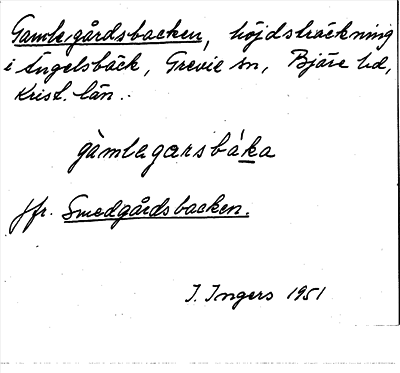 Gamlegårdsbacken, höjdsträckning
i Ängelsbäck, Grevie sn, Bjäre hd,
Krist. län.
gàmlagarsbáka
Jfr. Smedgårdsbacken.
I. Ingers 1951